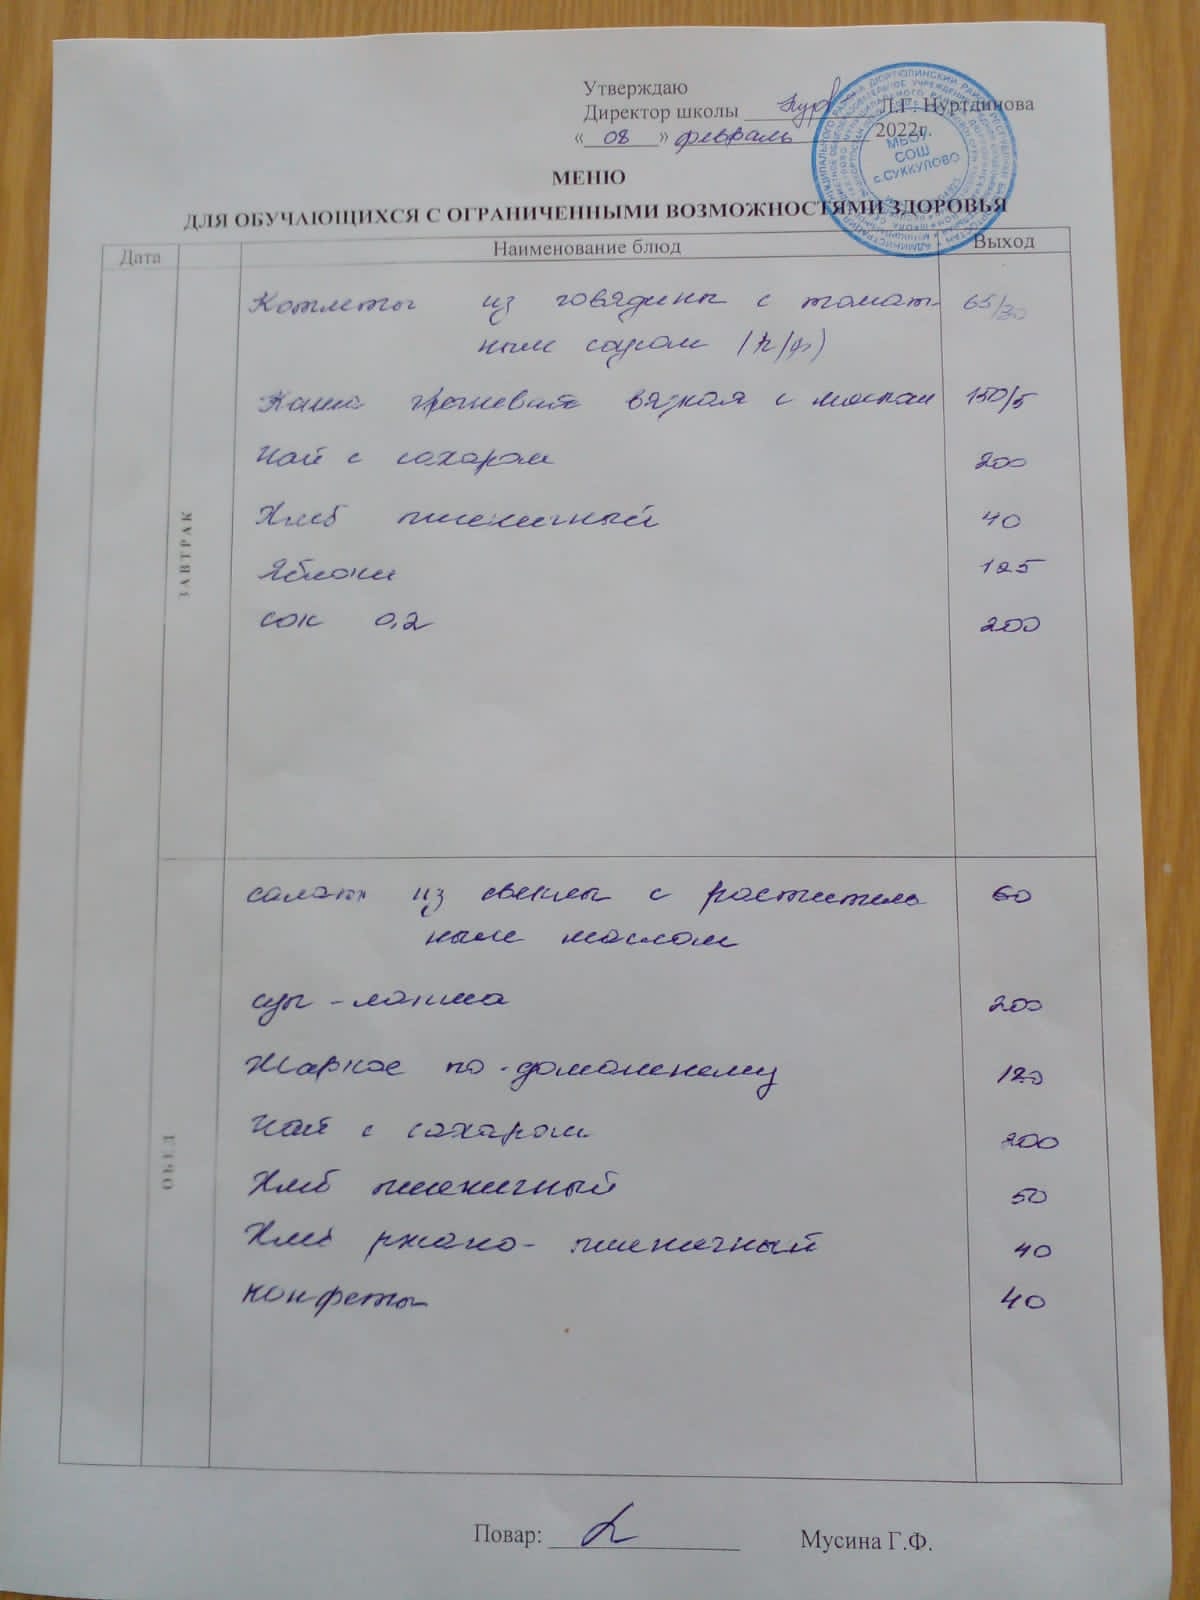 Утверждаю
Директор школы Л.Г. Нуртдинова
« 08 » февраль 2022г.
МБОУ
СОШ
с.СУККУЛОВО
МЕНЮ
ДЛЯ ОБУЧАЮЩИХСЯ С ОГРАНИЧЕННЫМИ ВОЗМОЖНОСТЯМИ ЗДОРОВЬЯ
Дата Наименование блюд Выход
ЗАВТРАК
Котлеты из говядины с томат- 65/30
ным соусом (п/ф)
Каша гречневая вязкая с маслом 150/5
Чай с сахаром 200
Хлеб пшеничный 40
Яблоки 125
сок 0,2 200
ОБЕД
салат из свеклы с раститель 60
ным маслом
суп-лапша 200
Жаркое по-домашнему 120
Чай с сахаром 200
Хлеб пшеничный 50
Хлеб ржано-пшеничный 40
конфеты 40
Повар: Мусина Г.Ф.